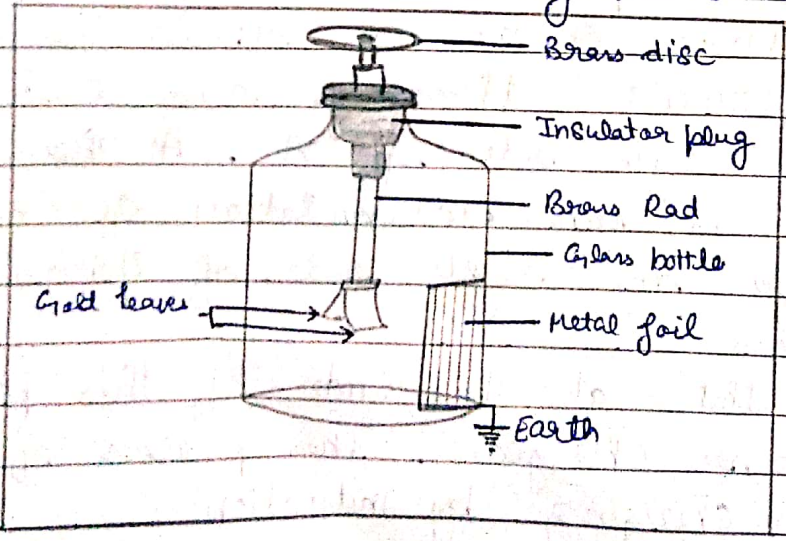 Brass disc
Insulator plug
Brass Rad
Glass bottle
Gold leaves
Metal foil
Earth